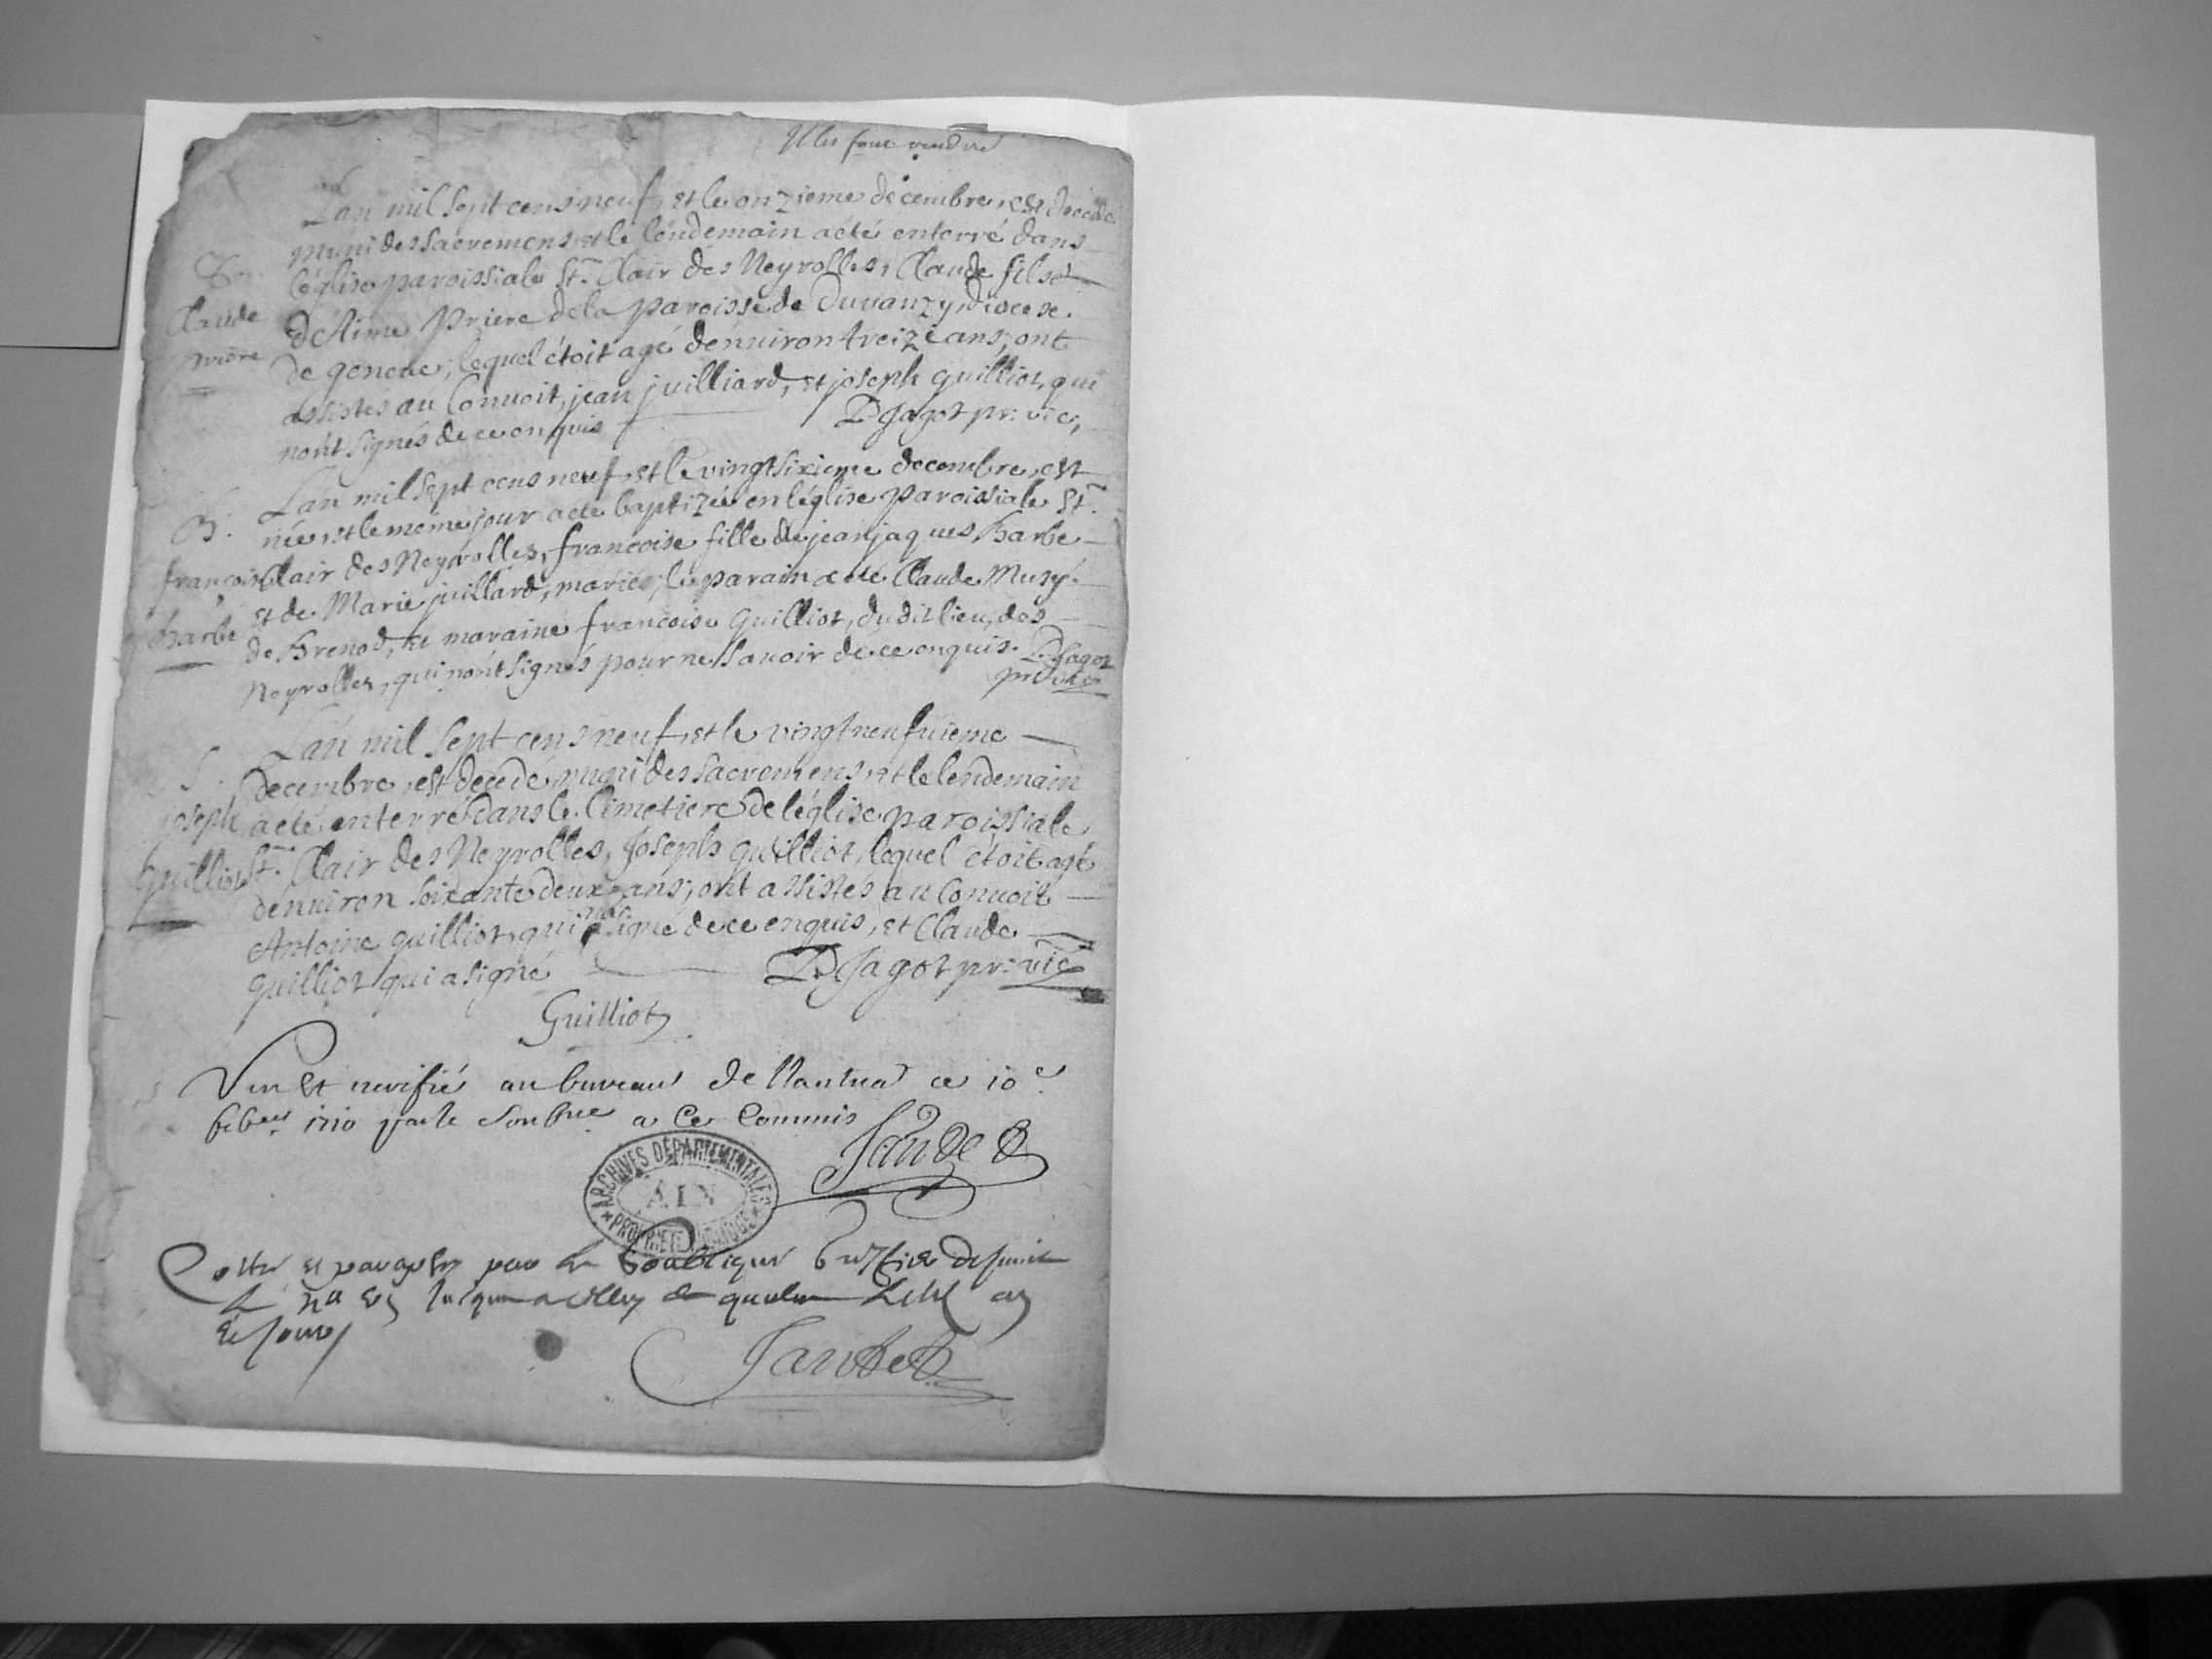 Il les faut rendre
Lan mil sept cens neuf, et le onzieme decembre, est decedé
muni des sacremens, et le lendemain a été enterré dans
S.
léglise paroissiale St. Clair des Neyrolles, Claude fils
Claude
d'Aimé Priere de la paroisse de Duuanzy, diocese
priere
de geneue, lequel étoit agé dénuiron treize ans, ont
assistés au Conuoit, jean juilliard, et joseph guilliot, qui
nont signés de ce enquis
D Jagot pr: vic,
Lan mil sept cens neuf, et le vingt sixieme decembre, est
B.
née, et le méme jour a été baptizée en léglise paroissiale St.
françoise
Clair des Neyrolles, francoise fille de jean jaques Barbe
Barbe
et de Marie juillard, mariés, le parain a été Claude Musy
de Brenod, la maraine francoise guilliot, du dit lieu, des
Neyrolles, qui nont signés pour ne sauoir de ce enquis. D. Jagot
pr: vic
Lan mil sept cens neuf, et le vingt neufuieme
S.
decembre, est decedé, muni des sacremens, et le lendemain
joseph
a été enterré dans le Cimetiere de léglise paroissiale
guilliot
St. Clair des Neyrolles, Joseph guilliot, lequel étoit agé
dénuiron soixante deux ans, ont assistés au Conuoit
Antoine guilliot, qui na signé de ce enquis, et Claude
guilliot qui a signé
D. Jagot pr: vic
Guilliot
Veu et verifié au bureau de Nantua ce 10e
feb. 1710 par le a ce Commis
Jaudet
ARCHIVES DÉPARTEMENTALES
AIN
PROPRIÉTÉ PUBLIQUE
Cotté et paraphé par
Jaudet